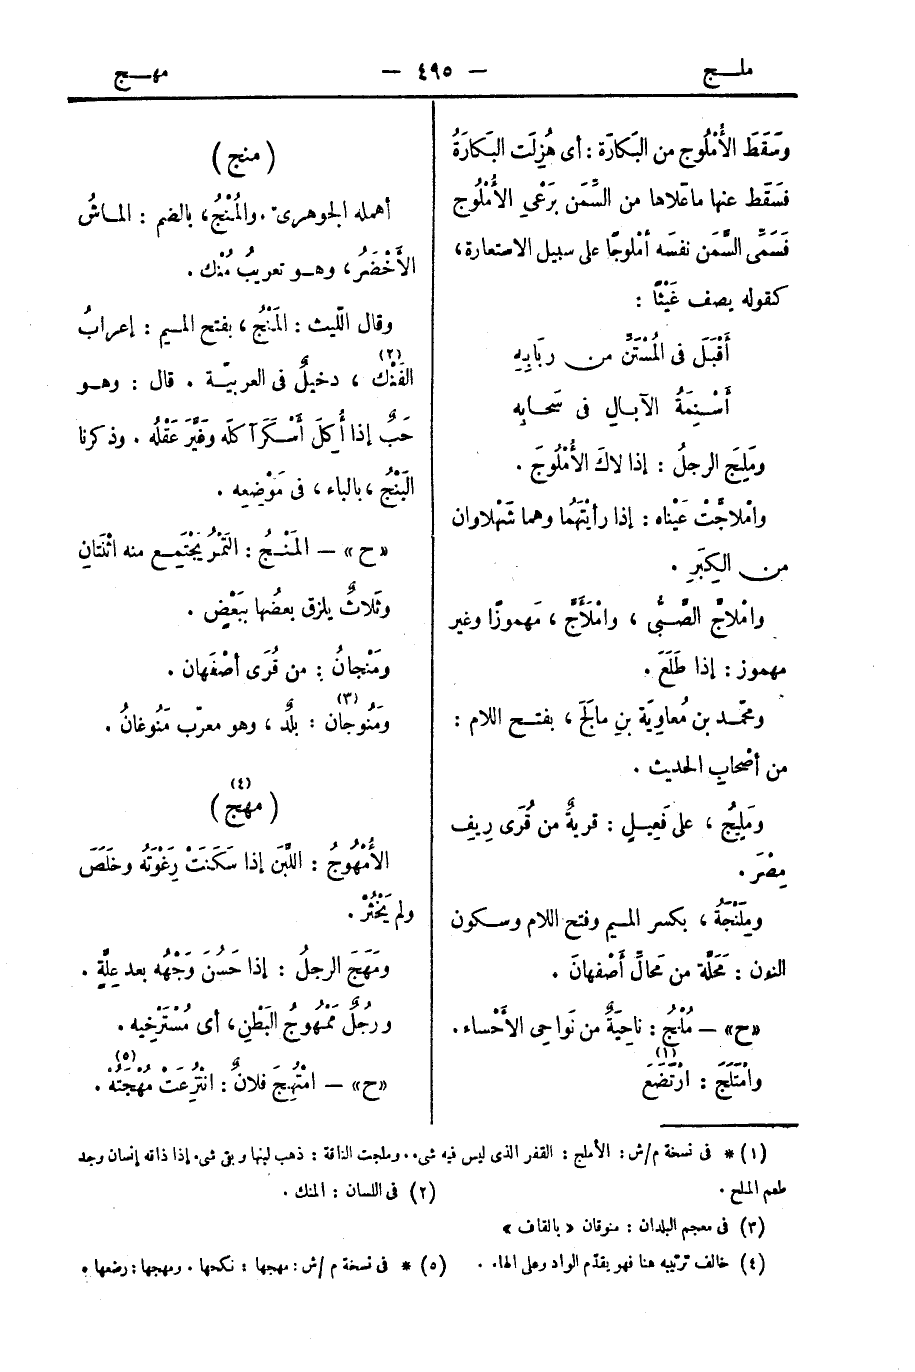 ملـــج
— ٤٩٥ —
مهـــج
وسَقَطَ الأُمْلُوج من البَكارَة : أى هُزِلَت البَكارَةُ
فسَقَط عنها ماعَلاها من السِّمَن بَرَعْىِ الأُمْلُوج
فَسَمَّى السِّمَن نفسَه أُمْلوجًا على سبيل الاستعارة،
كقوله يصف غَيْثًا :
أَقْبَلَ فى المُسْتَنِّ من رَبَابِهِ
أَسْـنِمَةُ الآبـالِ فى سَحـابِهِ
ومَلِجَ الرجلُ : إذا لاكَ الأُمْلُوجَ .
وامْلاجَّتْ عَيْناه : إذا رأَيْتَهُما وهما شَهْلاوان
مـن الكِبَرِ .
وامْلاجَّ الصَّبىُّ ، وامْلَأَجَّ ، مَهموزًا وغير
مهموز : إذا طَلَعَ .
ومحمّـد بن مُعاوِيَة بنِ مالَجَ ، بفتـح اللام :
من أصْحابِ الحديث .
ومَلِيجُ ، على فَعِيلٍ : قريةٌ من قُرَى رِيف
مِصْرَ .
ومِلَنْجَةُ ، بكسر الميم وفتح اللام وسـكون
النون : مَحَلَّة من مَحالِّ أصْفَهانَ .
«ح» — مُلْجُ : ناحِيَةٌ من نَواحِى الأَحْساء .
وامْتَلَجَ : ارْتَضَعَ (١)
( منج )
أهمله الجوهرىّ . والمُنْجُ ، بالضم : المـاشُ
الأَخْضَرُ ، وهـو تعريبُ مُنْك .
وقال اللّيث : المَنْجُ ، بفتح الميم : إعرابُ
الفَنْك (٢) ، دخيلٌ فى العربيّة . قال : وهـو
حَبٌّ إذا أُكِلَ أَسْكَرَ آكلَه وغَيَّرَ عَقْلَه . وذكرنا
البَنْجُ ، بالباء ، فى مَوْضِعِه .
«ح» — المَنْـجُ : التَمْرُ يَجْتَمِـع منه اثْنَتانِ
وثَلاثٌ يلزق بعضُها ببَعْضٍ .
ومَنْجانُ : من قُرَى أصْفَهان .
ومَنُوجان (٣) : بلدٌ ، وهو معرّب مَنُوغانُ .
( مهج ) (٤)
الأُمْهُوجُ : اللَّبَن إذا سَكَنَتْ رِغْوَتُه وخَلَصَ
ولم يَخْثُرْ .
ومَهَجَ الرجلُ : إذا حَسُنَ وَجْهُه بعد عِلَّةٍ .
ورجُلٌ مَمْهُوجُ البَطْنِ ، أى مُسْتَرْخِيه .
«ح» — امْتُهِجَ فلانٌ : انْتُزِعَتْ مُهْجَتُه (٥) .
(١) * فى نسخة م/ش : الأملج : القفر الذى ليس فيه شىء . وملجت الناقة : ذهب لبنها وبقى شىء إذا ذاقه إنسان وجد
طعم الملح .
(٢) فى اللسان : المنك .
(٣) فى معجم البلدان : منوقان « بالقاف »
(٤) خالف ترتيبه هنا فهو يقدّم الواو على الهاء .
(٥) * فى نسخة م/ش : مهجها : نكحها . ومهجها : رضعها .